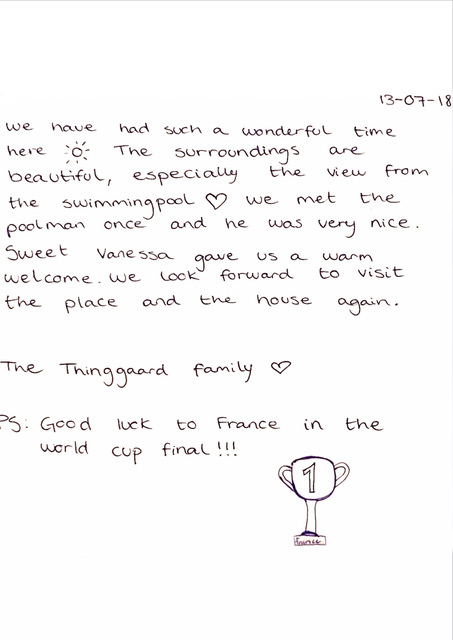 13-07-18
we have had such a wonderful time
here The surroundings are
beautiful, especially the view from
the swimmingpool ♡ we met the
poolman once and he was very nice.
Sweet Vanessa gave us a warm
welcome. we look forward to visit
the place and the house again.
The Thinggaard family ♡
PS: Good luck to France in the
world cup final!!!
1
France